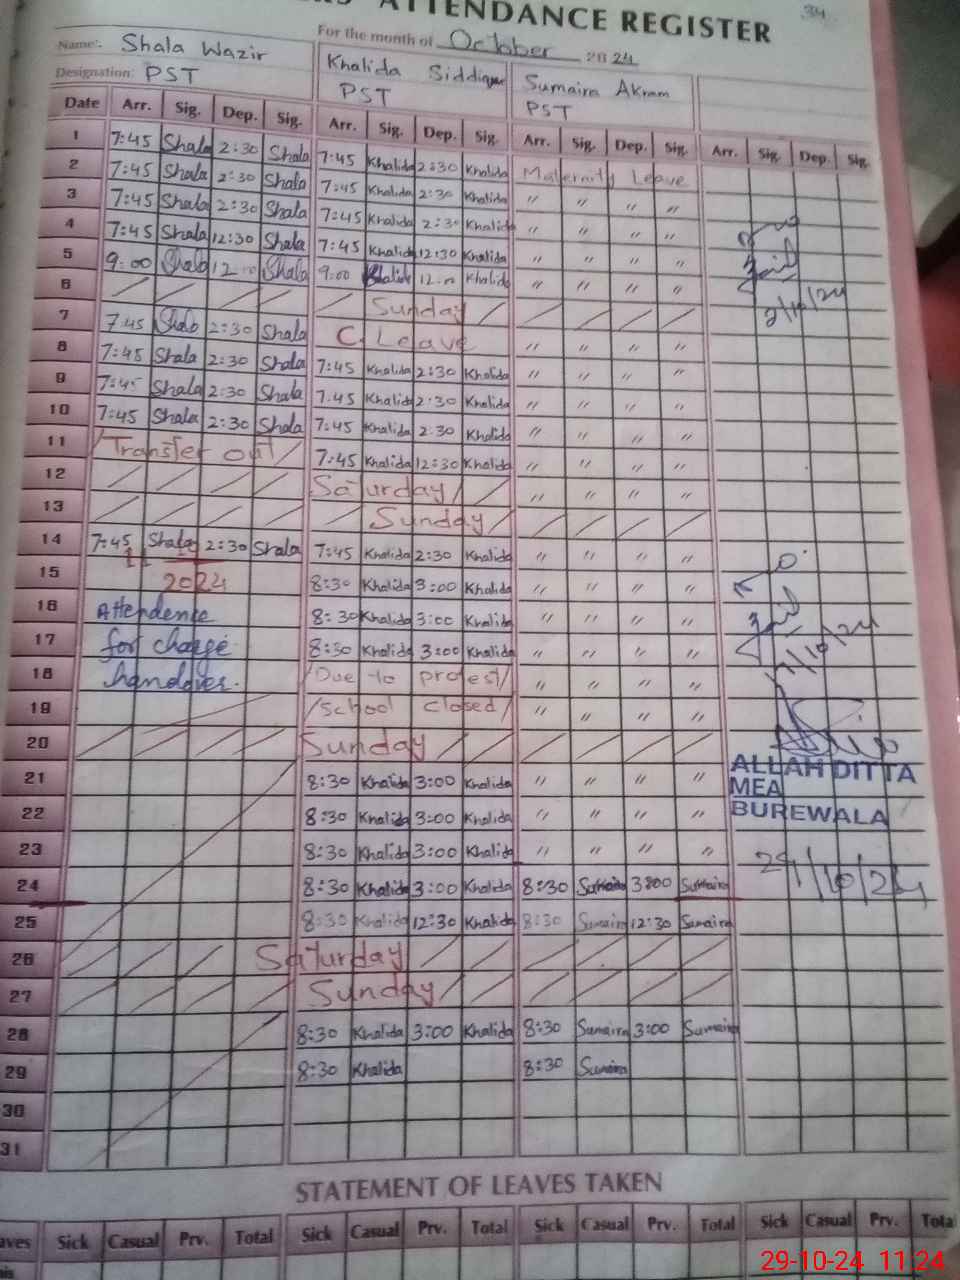 ATTENDANCE REGISTER
34
Name: Shala Wazir
For the month of October 2024
Designation: PST
Khalida Siddique
PST
Sumaira Akram
PST
Date Arr. Sig. Dep. Sig. Arr. Sig. Dep. Sig. Arr. Sig. Dep. Sig. Arr. Sig. Dep. Sig.
1 7:45 Shala 2:30 Shala 7:45 Khalida 2:30 Khalida Maternity Leave
2 7:45 Shala 2:30 Shala 7:45 Khalida 2:30 Khalida " " " "
3 7:45 Shala 2:30 Shala 7:45 Khalida 2:30 Khalida " " " "
4 7:45 Shala 12:30 Shala 7:45 Khalida 12:30 Khalida " " " "
5 9:00 Shala 12:00 Shala 9:00 Khalida 12:00 Khalida " " " "
6 Sunday
7 7:45 Shala 2:30 Shala C Leave " " " "
8 7:45 Shala 2:30 Shala 7:45 Khalida 2:30 Khalida " " " "
9 7:45 Shala 2:30 Shala 7:45 Khalida 2:30 Khalida " " " "
10 7:45 Shala 2:30 Shala 7:45 Khalida 2:30 Khalida " " " "
11 Transfer out 7:45 Khalida 12:30 Khalida " " " "
12 Saturday " " " "
13 Sunday
14 7:45 Shala 2:30 Shala 7:45 Khalida 2:30 Khalida " " " "
15 2024 8:30 Khalida 3:00 Khalida " " " "
16 Attendence 8:30 Khalida 3:00 Khalida " " " "
17 for charge 8:30 Khalida 3:00 Khalida " " " "
18 handover. Due to protest " " " "
19 School closed " " " "
20 Sunday
21 8:30 Khalida 3:00 Khalida " " " "
22 8:30 Khalida 3:00 Khalida " " " "
23 8:30 Khalida 3:00 Khalida " " " "
24 8:30 Khalida 3:00 Khalida 8:30 Sumaira 3:00 Sumaira
25 8:30 Khalida 12:30 Khalida 8:30 Sumaira 12:30 Sumaira
26 Saturday
27 Sunday
28 8:30 Khalida 3:00 Khalida 8:30 Sumaira 3:00 Sumaira
29 8:30 Khalida 8:30 Sumaira
30
31
ALLAH DITTA
MEA
BUREWALA
29/10/24
STATEMENT OF LEAVES TAKEN
Sick Casual Prv. Total Sick Casual Prv. Total Sick Casual Prv. Total Sick Casual Prv. Total
29-10-24 11:24